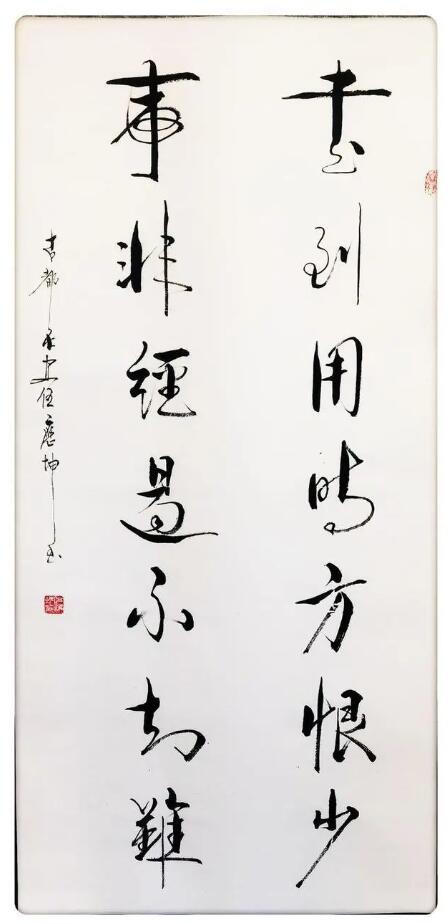 書到用時方恨少
事非經過不知難
古都長安任應坤書